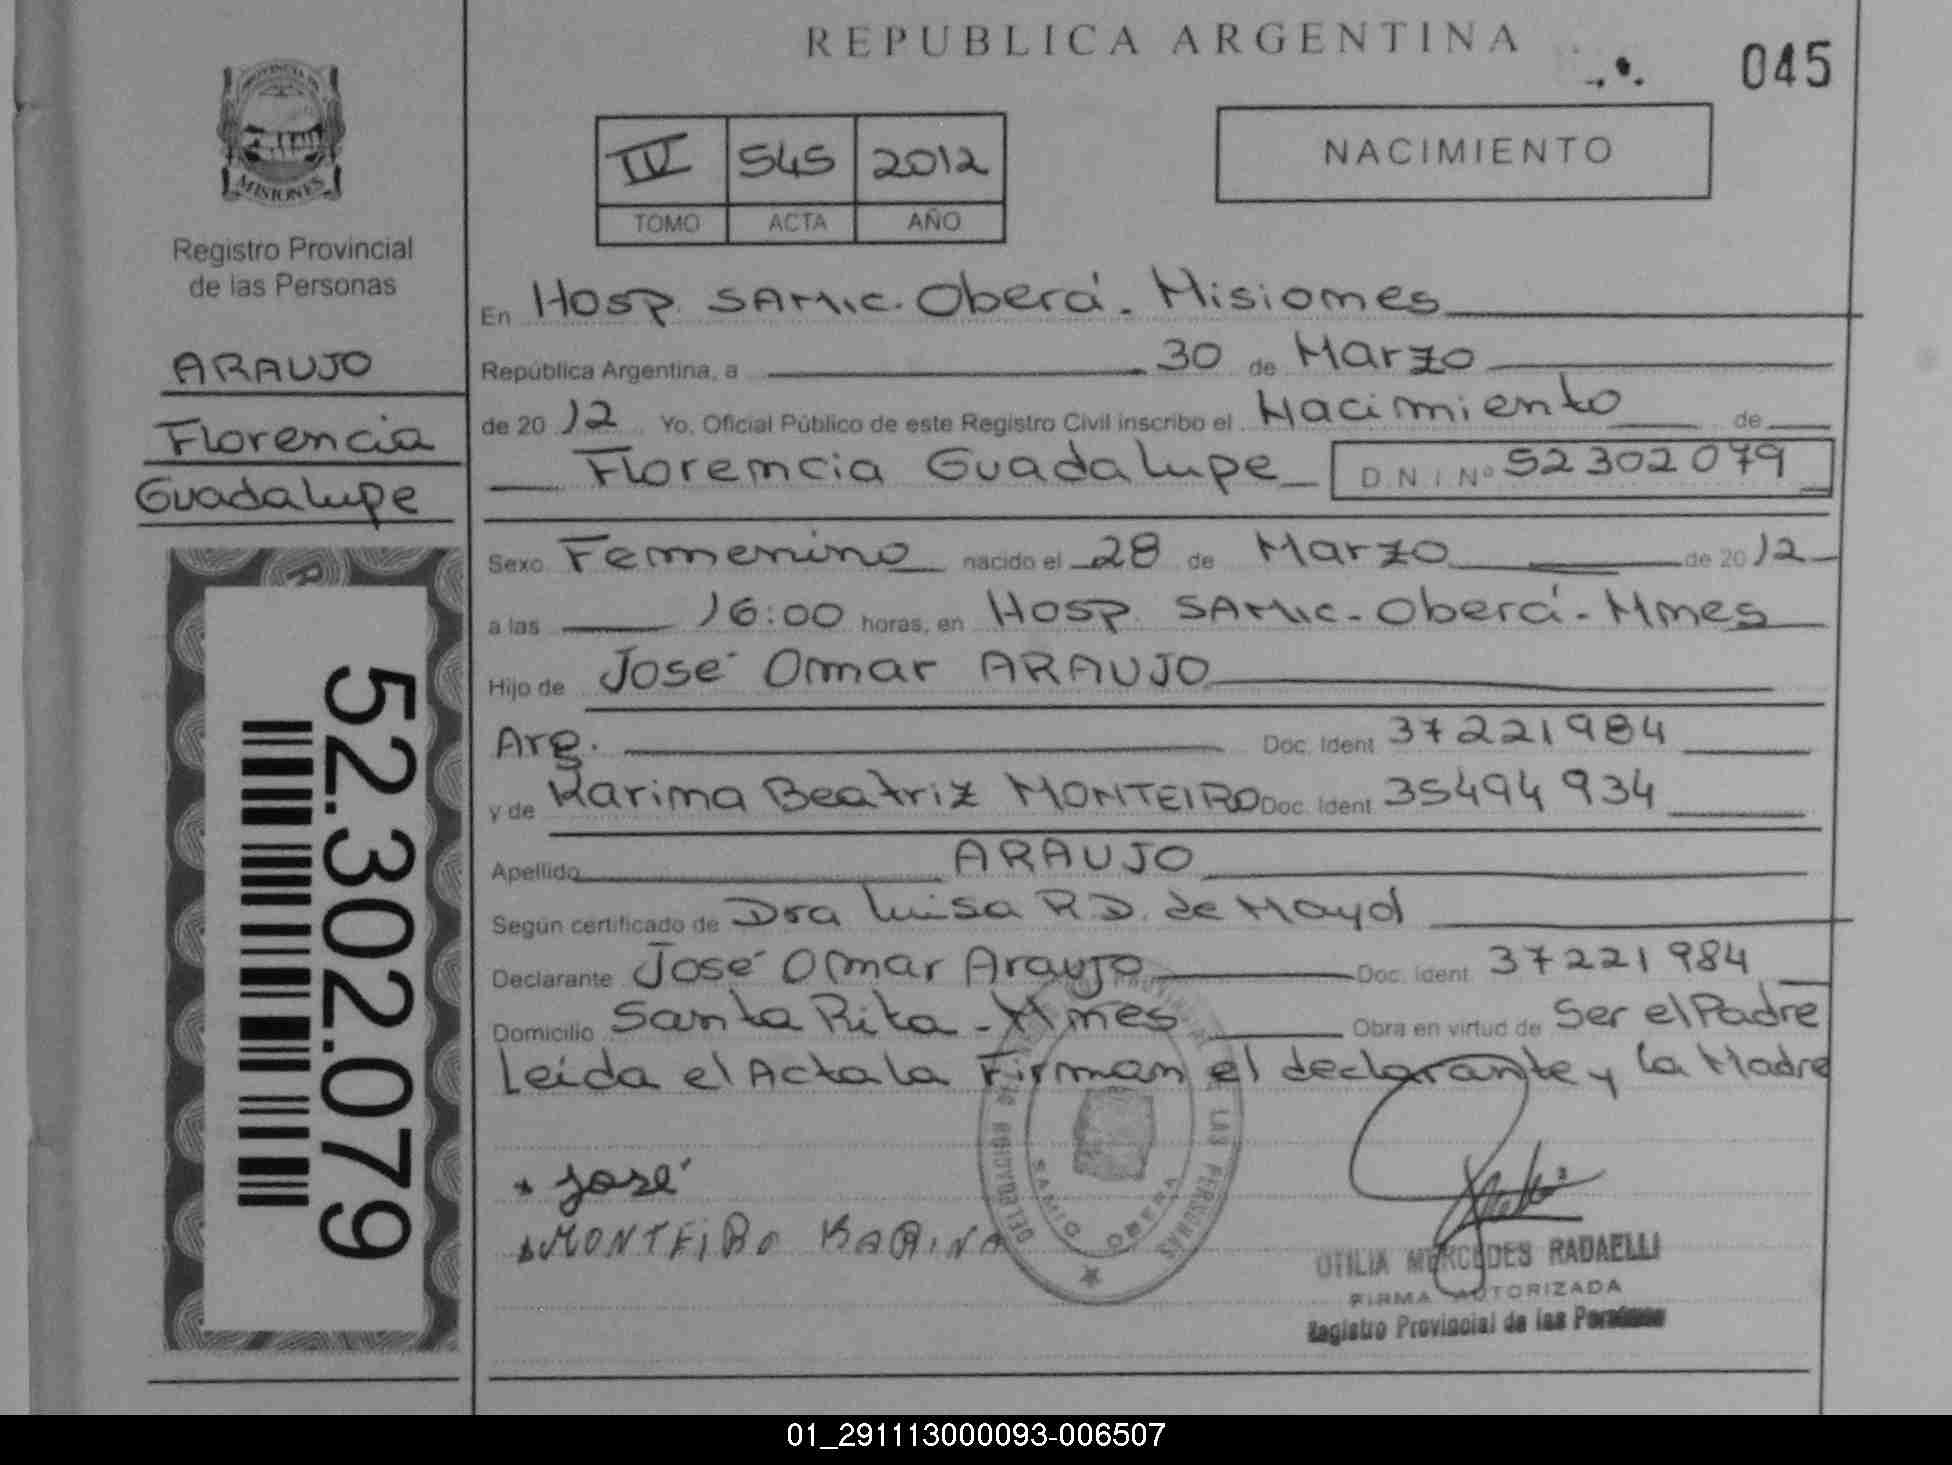 REPUBLICA ARGENTINA
045
PROVINCIA DE
MISIONES
Registro Provincial
de las Personas
ARAUJO
Florencia
Guadalupe
52.302.079
IV 545 2012
TOMO ACTA AÑO
NACIMIENTO
En Hosp. SAMIC. Oberá. Misiones
República Argentina, a 30 de Marzo
de 2012 Yo, Oficial Público de este Registro Civil inscribo el Nacimiento de
Florencia Guadalupe D N I Nº 52302079
Sexo Femenino nacido el 28 de Marzo de 2012
a las 16:00 horas, en Hosp. SAMIC - Oberá - Mnes
Hijo de José Omar ARAUJO
Arg. Doc. Ident 37221984
y de Karina Beatriz MONTEIRO Doc. Ident 35494934
Apellido ARAUJO
Según certificado de Dra Luisa R.D. de Mayol
Declarante José Omar Araujo Doc. Ident. 37221984
Domicilio Santa Rita - Mnes Obra en virtud de Ser el Padre
Leída el Acta la Firman el declarante y la Madre
José
MONTEIRO KARINA
LAS PERSONAS
SAMIC OBERA
OTILIA MERCEDES RADAELLI
FIRMA AUTORIZADA
Registro Provincial de las Personas
01_291113000093-006507